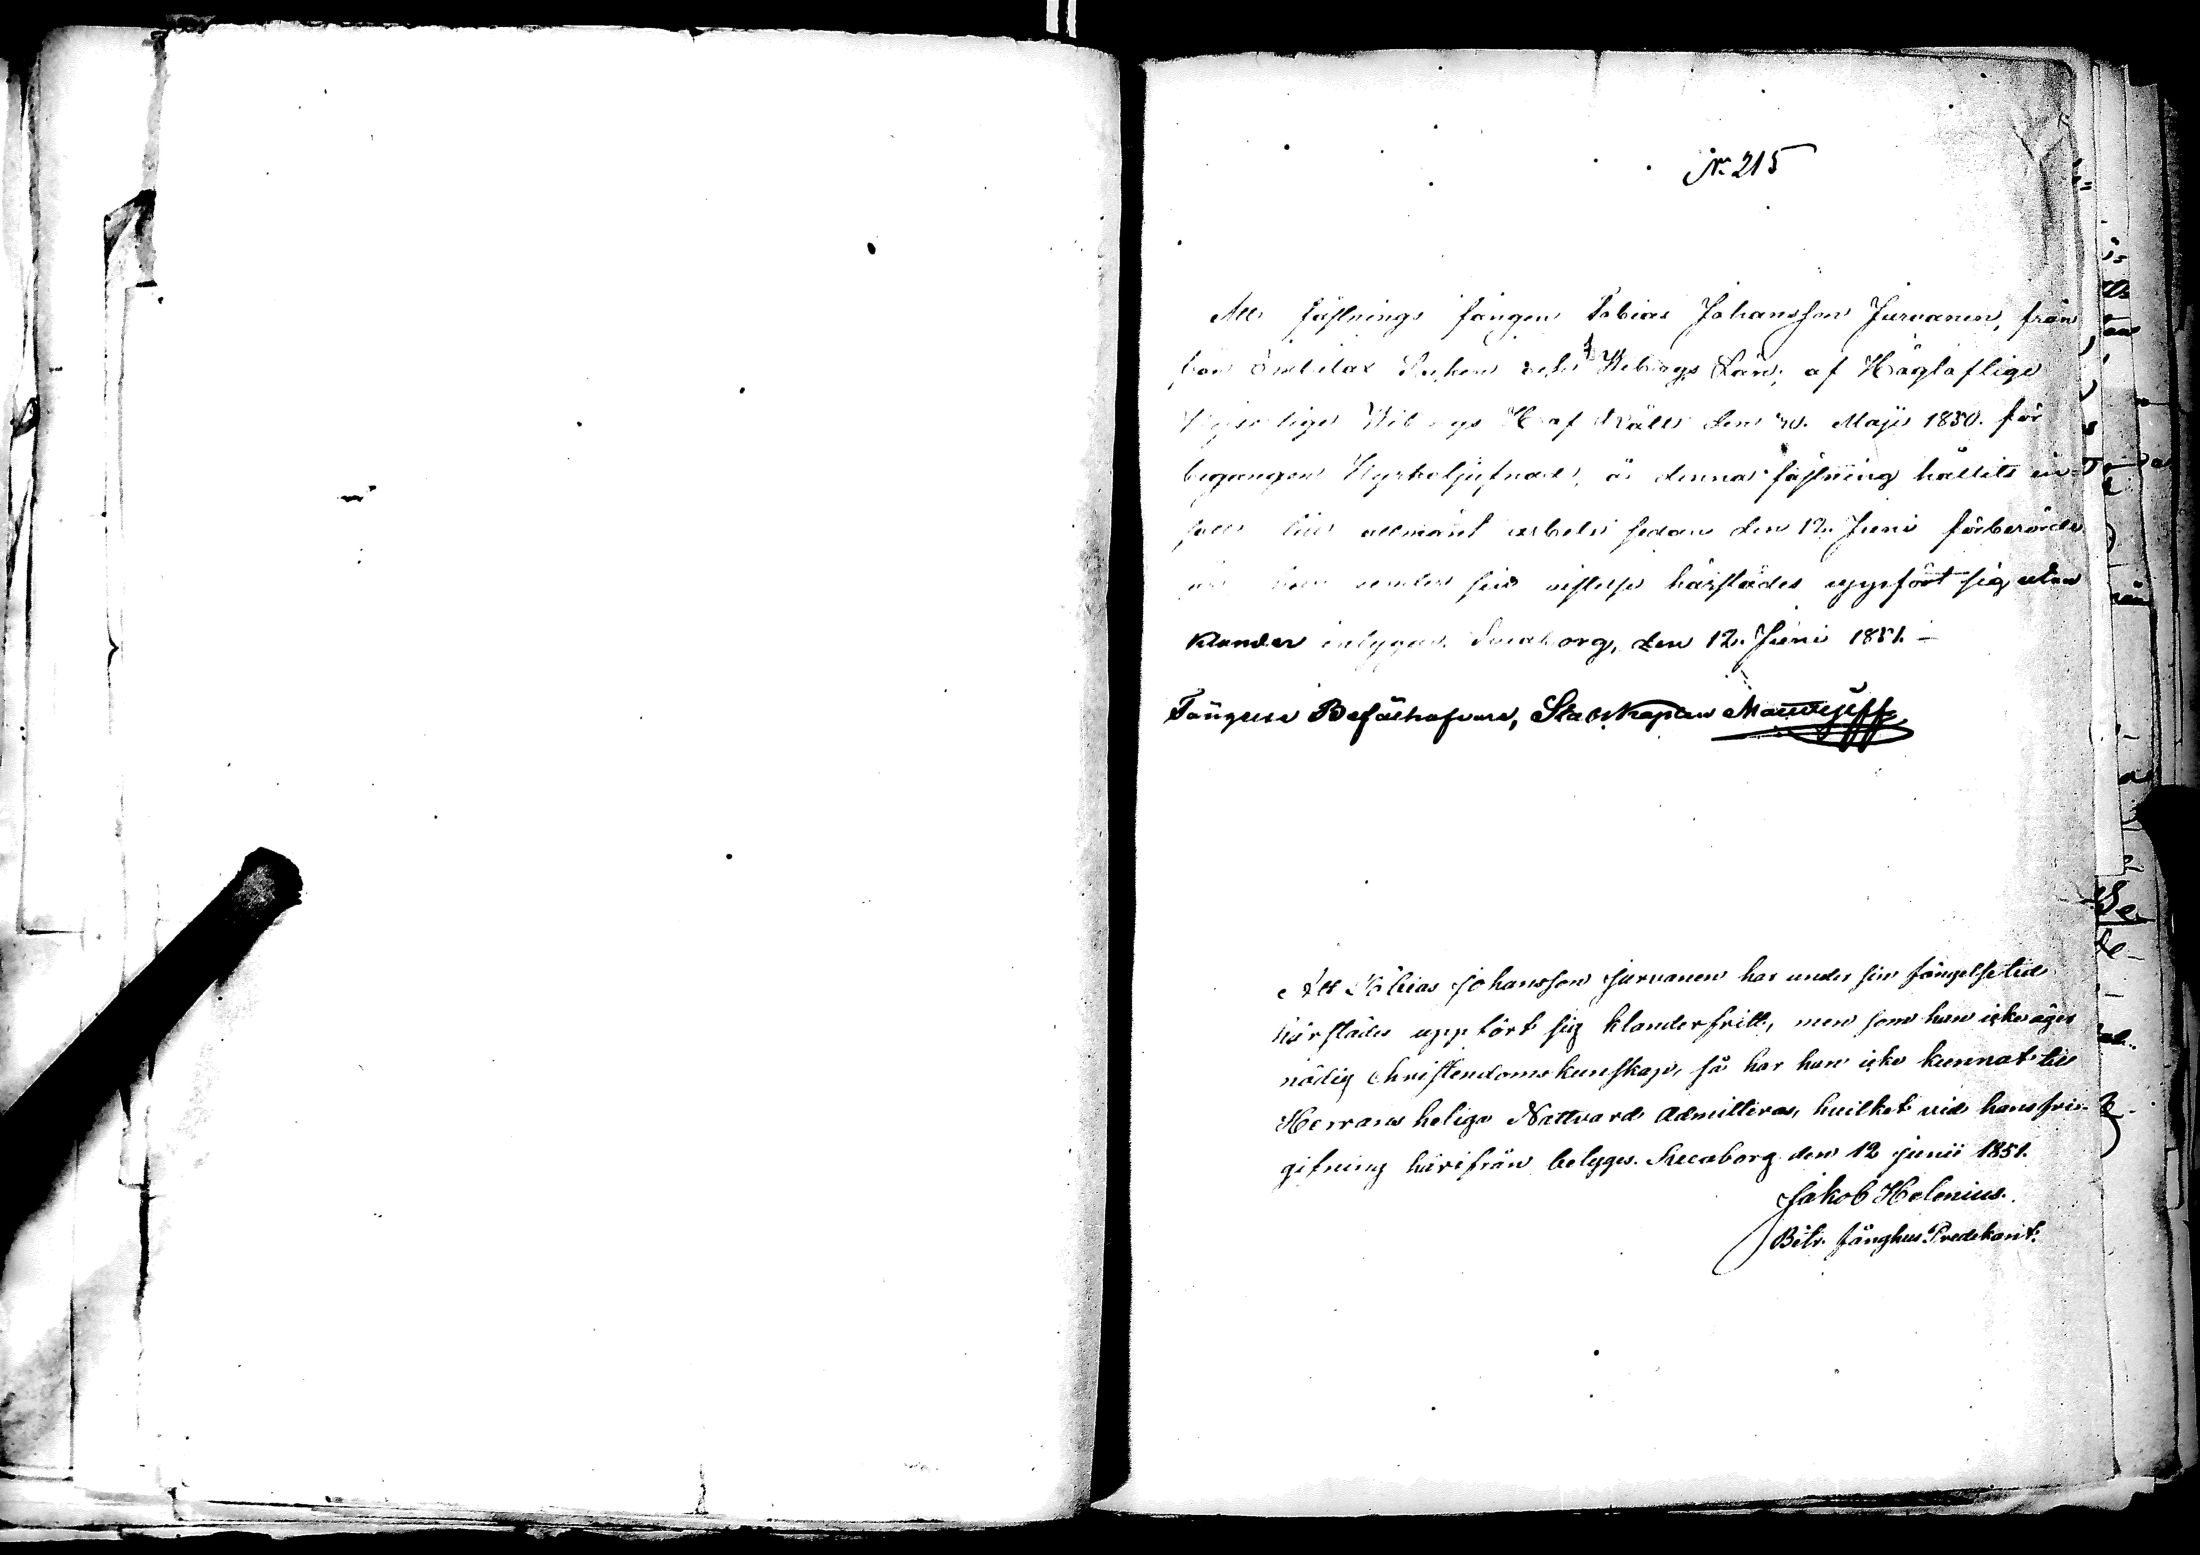 No. 215
Att fästnings fången Tobias Johansson Jurvanen, från
Imbilax Soken och Wiborgs Län, af Högloflige
Kejserlige Wiborgs Hof Rätt den 30. Maji 1850. för
begången Kyrkotjufnad, å denna fästning hållits in¬
till allmänt arbete sedan den 12. Juni förberörde
under sin vistelse härstädes uppfört sig utan
klander intygas. Sveaborg, den 12. Juni 1851.
Fångens Befälhafvare, Stabskapten
Att Tobias Johansson Jurvanen har under sin fängelsetid
härstädes uppfört sig klanderfritt, men som han icke äger
nödig christendomskunskap, så har han icke kunnat till
Herrans heliga Nattvard admitteras, hvilket vid hans fri¬
gifning härifrån belyges. Sveaborg den 12 junii 1851.
Jakob Helenius.
Bitr. fånghus Predikant.